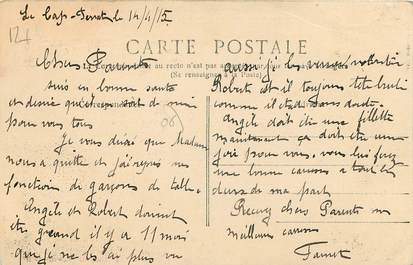 Le Cap-Ferrat le 14/4/15
124
CARTE POSTALE
La Correspondance au recto n'est pas
(Se renseigner à la Poste)
Correspondance
Chers Parents
suis en bonne santé
et désire qu'il en soit de même
pour vous tous
06
Je vous dirai que Madame
nous a quitté et j'ai repris mes
fonction de garçons de table.
Angèle et Robert doivent
être grand il y a 11 mois
que je ne les ai plus vu
aussi je les verrais volontier
Robert est il toujours tête
comme il était sans doute.
Angèle doit être une fillette
maintenant ça doit être une
joie pour vous, vous lui ferez
une bonne caresse a tout les
deux de ma part
Recevez chers Parents mes
meilleurs caresses